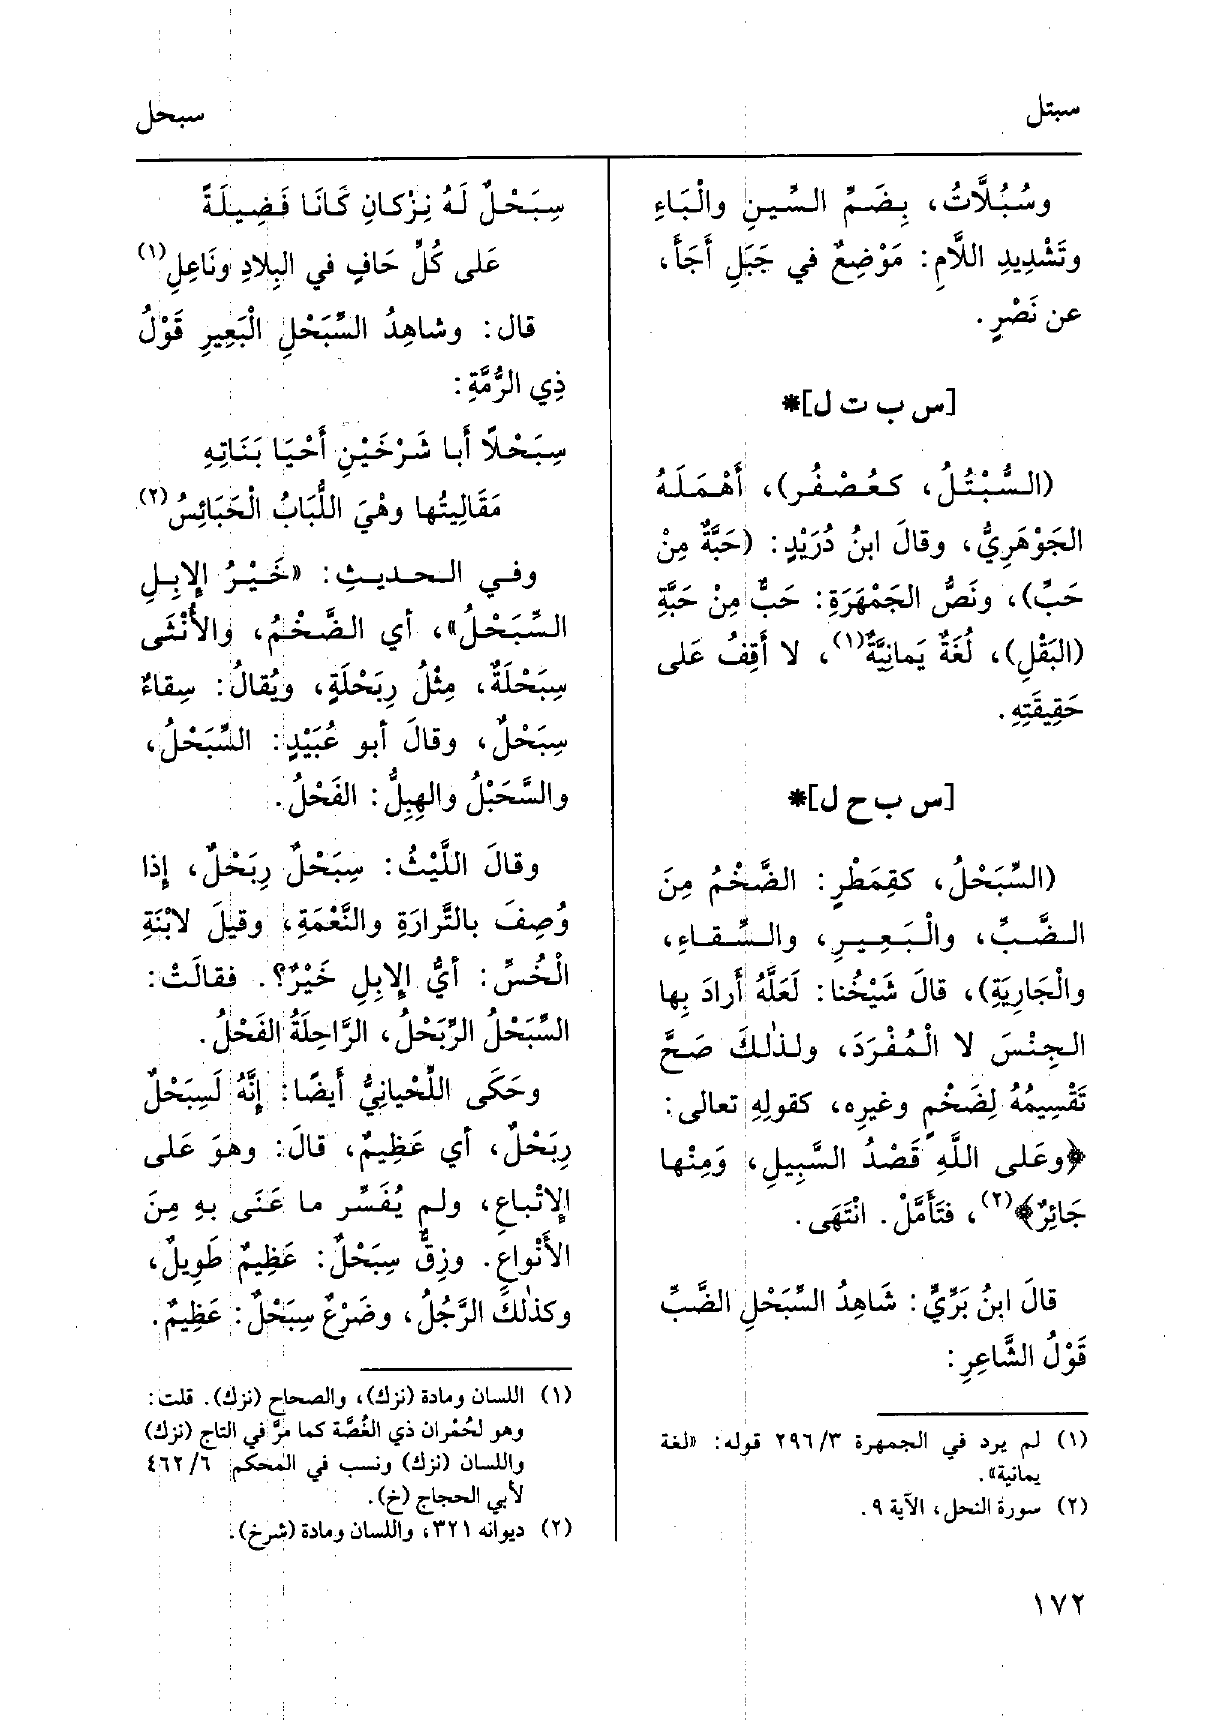 سبتل
سبحل
وسُبُلَّاتُ، بِضَمِّ السِّينِ والْبَاءِ
وتَشْدِيدِ اللَّامِ: مَوْضِعٌ في جَبَلِ أَجَأَ،
عن نَصْرٍ.
[س ب ت ل]*
(السُّبْتُلُ، كعُصْفُر)، أَهْمَلَهُ
الجَوْهَرِيُّ، وقالَ ابنُ دُرَيْدٍ: (حَبَّةٌ مِنْ
حَبِّ)، ونَصُّ الجَمْهَرَةِ: حَبٌّ مِنْ حَبَّةِ
(البَقْلِ)، لُغَةٌ يَمانِيَّةٌ(١)، لا أَقِفُ عَلى
حَقِيقَتِهِ.
[س ب ح ل]*
(السِّبَحْلُ، كقِمَطْرٍ: الضَّخْمُ مِنَ
الضَّبِّ، والْبَعِيرِ، والسِّقاءِ،
والْجَارِيَةِ)، قالَ شَيْخُنا: لَعَلَّهُ أَرادَ بِها
الجِنْسَ لا الْمُفْرَدَ، ولذٰلكَ صَحَّ
تَقْسِيمُهُ لِضَخْمٍ وغيرِه، كقولِهِ تعالى:
﴿وعَلى اللَّهِ قَصْدُ السَّبِيلِ، وَمِنْها
جَائِرٌ﴾(٢)، فتَأَمَّلْ. انْتَهَى.
قالَ ابنُ بَرِّيٍّ: شَاهِدُ السِّبَحْلِ الضَّبِّ
قَوْلُ الشَّاعِرِ:
(١) لم يرد في الجمهرة ٢٩٦/٣ قوله: «لغة
يمانية».
(٢) سورة النحل، الآية ٩.
سِبَحْلٌ لَهُ نِزْكانِ كَانَا فَضِيلَةً
عَلى كُلِّ حَافٍ في البِلادِ ونَاعِلِ(١)
قال: وشاهِدُ السِّبَحْلِ الْبَعِيرِ قَوْلُ
ذِي الرُّمَّةِ:
سِبَحْلًا أَبا شَرْخَيْنِ أَحْيَا بَنَاتِهِ
مَقَالِيتُها وهْيَ اللُّبَابُ الْحَبَائِسُ(٢)
وفي الحديثِ: «خَيْرُ الإِبِلِ
السِّبَحْلُ»، أي الضَّخْمُ، والأُنْثَى
سِبَحْلَةٌ، مِثْلُ رِبَحْلَةٍ، ويُقالُ: سِقاءٌ
سِبَحْلٌ، وقالَ أبو عُبَيْدٍ: السِّبَحْلُ،
والسَّحْبَلُ والهِبِلُّ: الفَحْلُ.
وقالَ اللَّيْثُ: سِبَحْلٌ رِبَحْلٌ، إِذا
وُصِفَ بالتَّرارَةِ والنَّعْمَةِ، وقيلَ لابْنَةِ
الْخُسِّ: أيُّ الإِبِلِ خَيْرٌ؟. فقالَتْ:
السِّبَحْلُ الرِّبَحْلُ، الرَّاحِلَةُ الفَحْلُ.
وحَكَى اللِّحْيانِيُّ أَيضًا: إِنَّهُ لَسِبَحْلٌ
رِبَحْلٌ، أي عَظِيمٌ، قالَ: وهوَ عَلى
الإِتْباعِ، ولم يُفَسِّر ما عَنَى بهِ مِنَ
الأَنْواعِ. وزِقٌّ سِبَحْلٌ: عَظِيمٌ طَوِيلٌ،
وكذٰلكَ الرَّجُلُ، وضَرْعٌ سِبَحْلٌ: عَظِيمٌ.
(١) اللسان ومادة (نزك)، والصحاح (نزك). قلت:
وهو لحُمْران ذي الغُصَّة كما مرَّ في التاج (نزك)
واللسان (نزك) ونسب في المحكم ٤٦٢/٦
لأبي الحجاج (خ).
(٢) ديوانه ٣٢١، واللسان ومادة (شرخ).
١٧٢